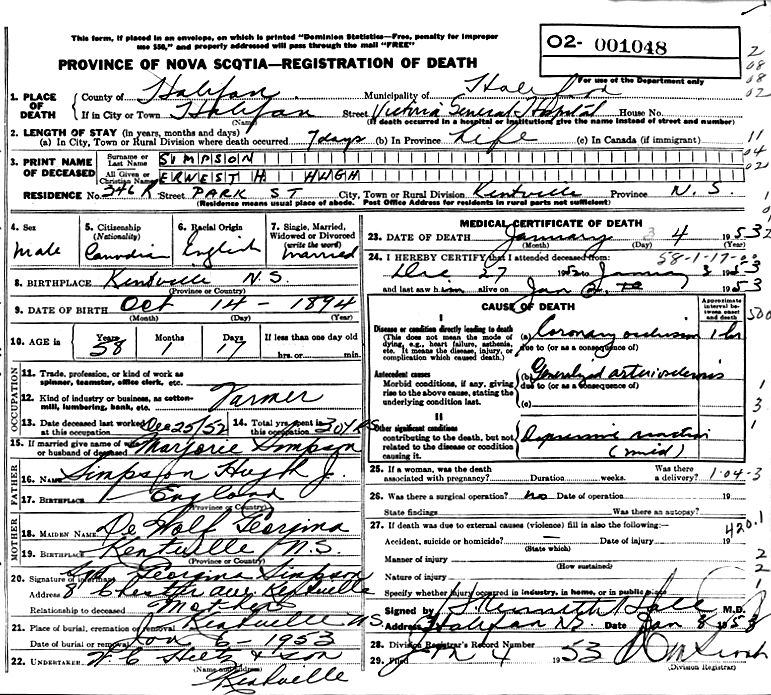 This form, if placed in an envelope, on which is printed "Dominion Statistics—Free, penalty for improper
use $50," and properly addressed will pass through the mail "FREE"
O2- 001048
PROVINCE OF NOVA SCOTIA—REGISTRATION OF DEATH
For use of the Department only
1. PLACE OF DEATH
County of Halifax Municipality of Halifax
If in City or Town Halifax Street Victoria General Hospital House No.
(Name) (If death occurred in a hospital or institution, give the name instead of street and number)
2. LENGTH OF STAY (in years, months and days)
(a) In City, Town or Rural Division where death occurred 7 days (b) In Province Life (c) In Canada (if immigrant)
3. PRINT NAME OF DECEASED
Surname or Last Name SIMPSON
All Given or Christian Names ERNEST H. HUGH
RESIDENCE No. 346 R Street PARK ST City, Town or Rural Division Kentville Province N.S.
(Residence means usual place of abode. Post Office Address for residents in rural parts not sufficient)
4. Sex Male
5. Citizenship (Nationality) Canadian
6. Racial Origin English
7. Single, Married, Widowed or Divorced (write the word) Married
8. BIRTHPLACE Kentville N.S.
(Province or Country)
9. DATE OF BIRTH Oct 14 - 1894
(Month) (Day) (Year)
10. AGE in Years 58 Months 1 Days 17 If less than one day old
hrs. or min.
OCCUPATION
11. Trade, profession, or kind of work as
spinner, teamster, office clerk, etc.
12. Kind of industry or business, as cotton-
mill, lumbering, bank, etc. Farmer
13. Date deceased last worked at this occupation Dec 25/52 14. Total yrs. spent in this occupation 30 YRS
15. If married give name of wife or husband of deceased Marjorie Simpson
FATHER
16. NAME Simpson Hugh J.
17. BIRTHPLACE England
(Province or Country)
MOTHER
18. MAIDEN NAME De Wolf Georgina
19. BIRTHPLACE Kentville N.S.
(Province or Country)
20. Signature of informant Georgina Simpson
Address 8 Chester Ave Kentville
Relationship to deceased Mother
21. Place of burial, cremation or removal Kentville N.S.
Date of burial or removal Jan 6 - 1953
22. UNDERTAKER & Son
(Name and Address) Kentville
MEDICAL CERTIFICATE OF DEATH
23. DATE OF DEATH January 4 1953
(Month) (Day) (Year)
24. I HEREBY CERTIFY that I attended deceased from: 58-1-17-
Dec 27 1952 to January 3 1953
and last saw him alive on Jan 1953
CAUSE OF DEATH
Approximate interval between onset and death
I
Disease or condition directly leading to death
(This does not mean the mode of dying, e.g., heart failure, asthenia, etc. It means the disease, injury, or complication which caused death.)
(a) Coronary occlusion 1 hr
due to (or as a consequence of)
Antecedent causes
Morbid conditions, if any, giving rise to the above cause, stating the underlying condition last.
(b) Generalized arteriosclerosis
due to (or as a consequence of)
(c)
II
Other significant conditions
contributing to the death, but not related to the disease or condition causing it.
Depressive reaction
(mild)
25. If a woman, was the death associated with pregnancy? Duration weeks. Was there a delivery? 1-04-3
26. Was there a surgical operation? no Date of operation 19
State findings Was there an autopsy?
27. If death was due to external causes (violence) fill in also the following:— 420.1
Accident, suicide or homicide? — Date of injury 19
(State which)
Manner of injury
(How sustained)
Nature of injury
Specify whether injury occurred in industry, in home, or in public place
Signed by M.D.
Address Halifax N.S. Date Jan 8 1953
28. Division Registrar's Record Number
29. Filed Jan 4 1953
(Division Registrar)